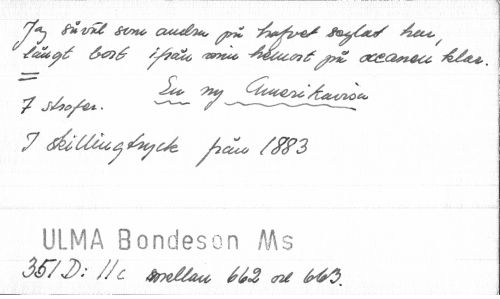 Jag såväl som andra på hafvet seglat har,
långt bort ifrån min hemort på oceanen klar.
=
En ny Amerikavisa
7 strofer.
I skillingtryck från 1883
ULMA Bondeson Ms
351 D: 11c mellan 662 och 663.